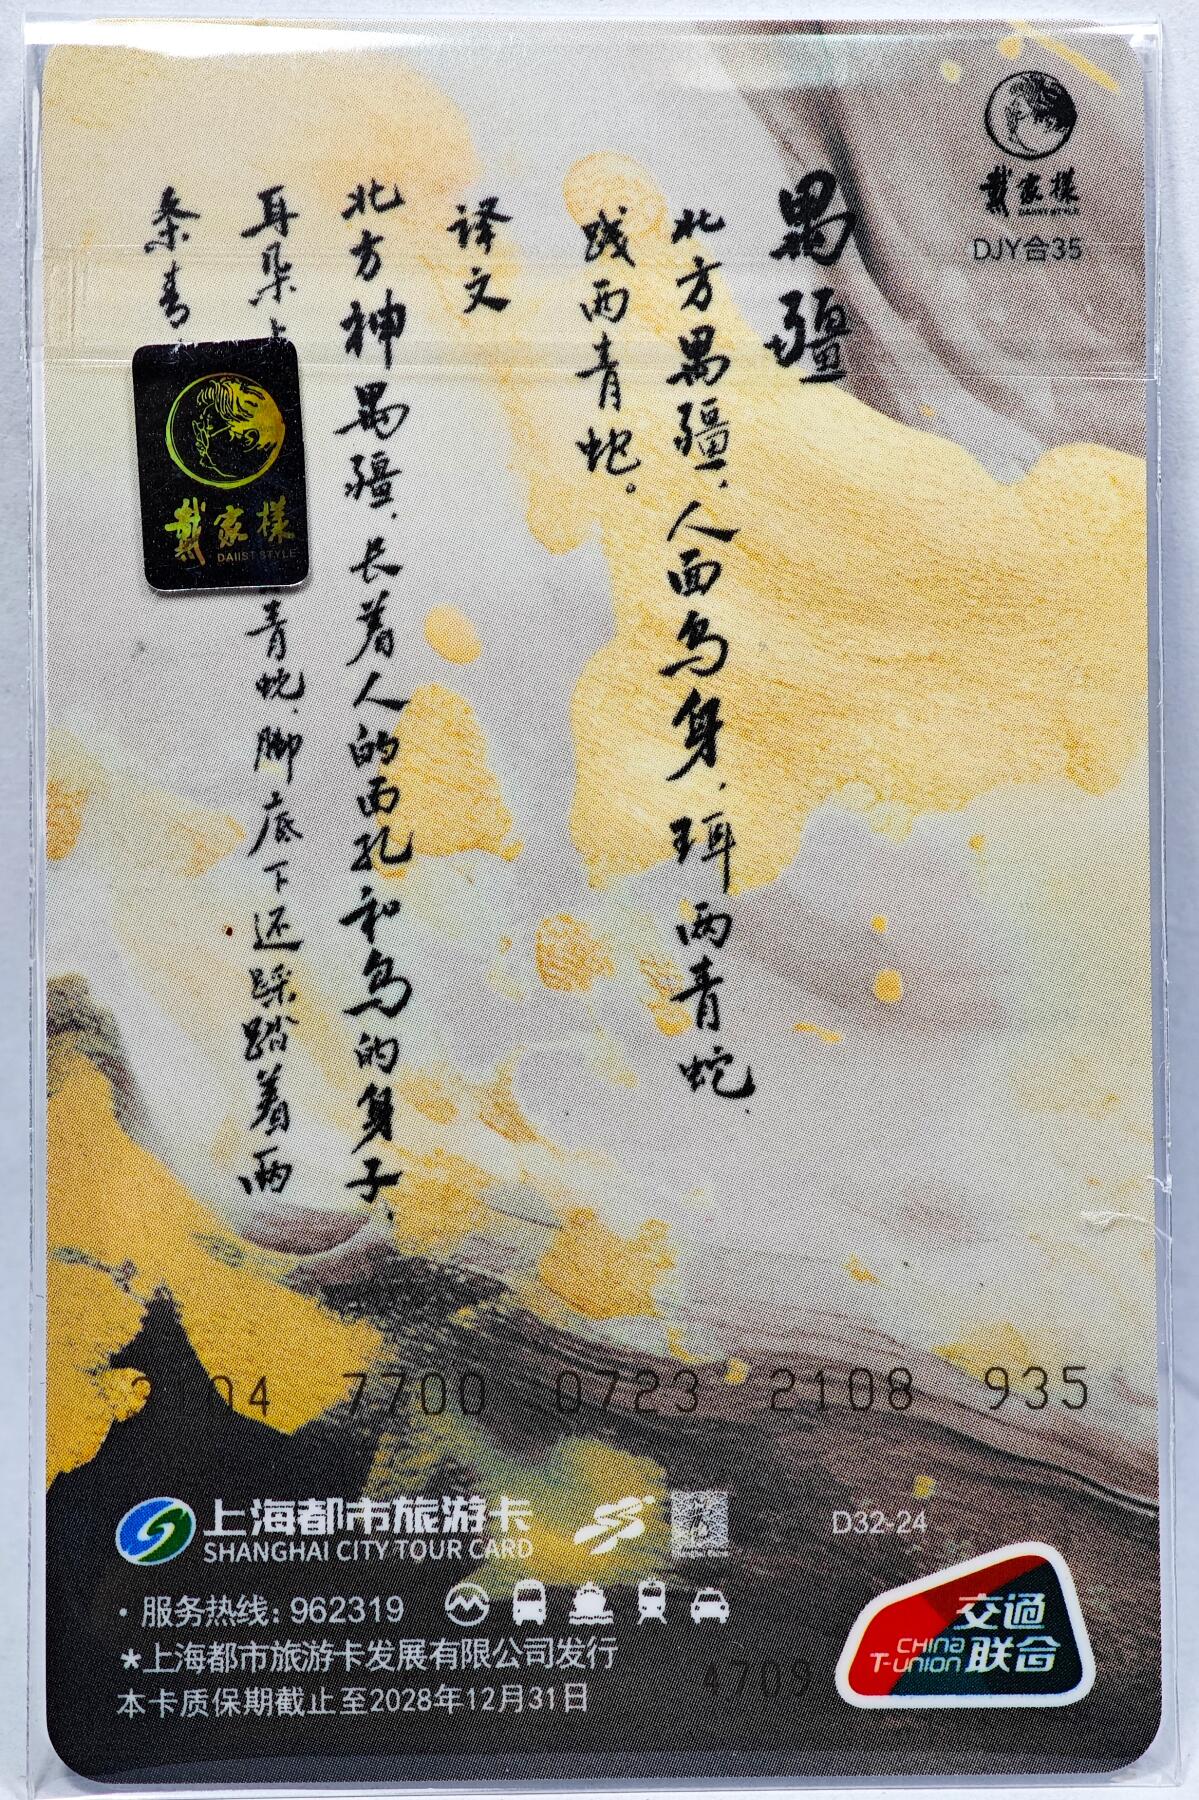 戴家様
DAIIST STYLE
DJY合35
禺彊
北方禺彊，人面鸟身，珥两青蛇，
践两青蛇。
译文
北方神禺彊，长着人的面孔和鸟的身子，
耳朵
青蛇，脚底下还踩踏着两
条青
戴家様
DAIIST STYLE
3104 7700 0723 2108 935
上海都市旅游卡
SHANGHAI CITY TOUR CARD
D32-24
·服务热线：962319
★上海都市旅游卡发展有限公司发行
4709
本卡质保期截止至2028年12月31日
交通
联合
CHINA
T-UNION